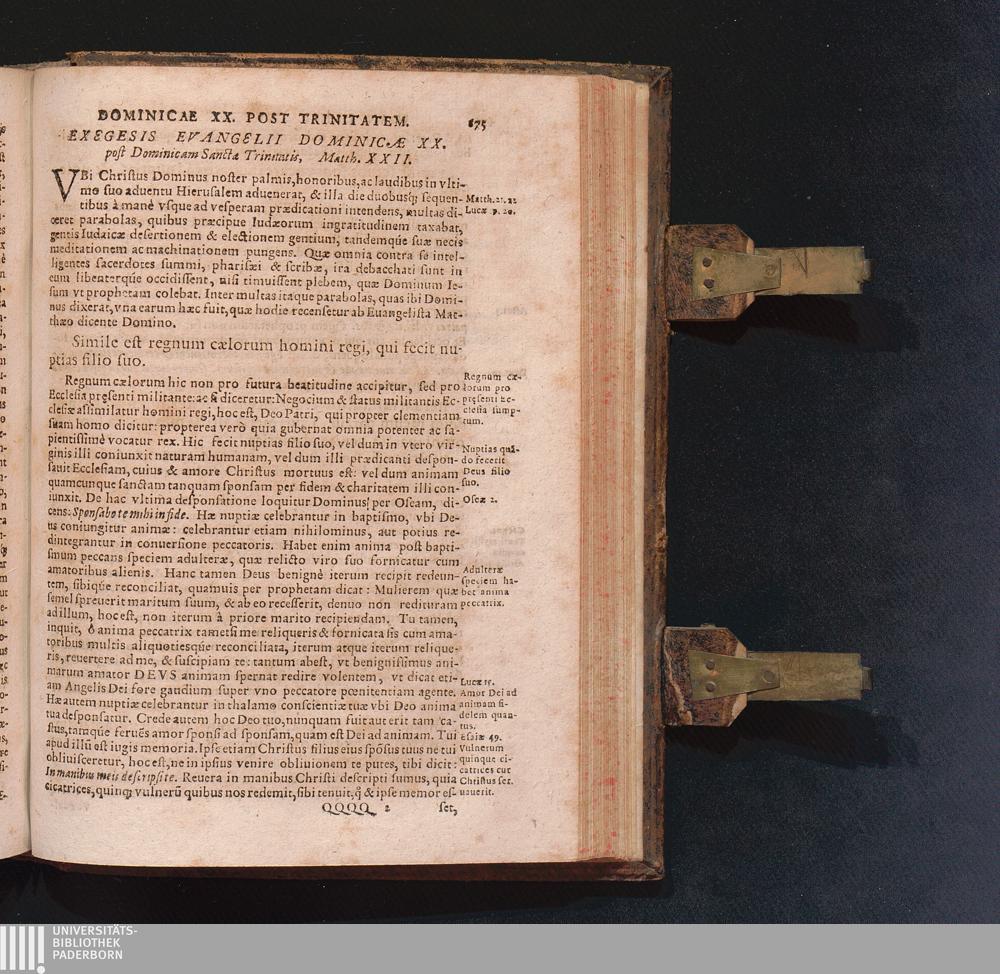 DOMINICAE XX. POST TRINITATEM. 675
EXEGESIS EVANGELII DOMINICÆ XX.
post Dominicam Sanctæ Trinitatis, Matth. XXII.
VBi Christus Dominus noster palmis, honoribus, ac laudibus in vlti-
mo suo aduentu Hierusalem aduenerat, & illa die duobusq; sequen-
tibus à manè vsque ad vesperam prædicationi intendens, multas di-
ceret parabolas, quibus præcipue Iudæorum ingratitudinem taxabat,
gentis Iudaicæ desertionem & electionem gentium, tandemqúe suæ necis
meditationem ac machinationem pungens. Quæ omnia contra se intel-
ligentes sacerdotes summi, pharisæi & scribæ, ira debacchati sunt in
eum libenterqúe occidissent, nisi timuissent plebem, quæ Dominum Ie-
sum vt prophetam colebat. Inter multas itaque parabolas, quas ibi Domi-
nus dixerat, vna earum hæc fuit, quæ hodie recensetur ab Euangelista Mat-
thæo dicente Domino.
Matth. 21. 22
Lucæ p. 20.
Simile est regnum cælorum homini regi, qui fecit nu-
ptias filio suo.
Regnum cælorum hic non pro futura beatitudine accipitur, sed pro
Ecclesia pręsenti militante: ac si diceretur: Negocium & status militantis Ec-
clesiæ assimilatur homini regi, hoc est, Deo Patri, qui propter clementiam
suam homo dicitur: propterea verò quia gubernat omnia potenter ac sa-
pientissimè vocatur rex. Hic fecit nuptias filio suo, vel dum in vtero vir-
ginis illi coniunxit naturam humanam, vel dum illi prædicanti despon-
sauit Ecclesiam, cuius & amore Christus mortuus est: vel dum animam
quamcunque sanctam tanquam sponsam per fidem & charitatem illi con-
iunxit. De hac vltima desponsatione loquitur Dominus per Oseam, di-
cens: Sponsabo te mihi in fide. Hæ nuptiæ celebrantur in baptismo, vbi De-
us coniungitur animæ: celebrantur etiam nihilominus, aut potius re-
dintegrantur in conuersione peccatoris. Habet enim anima post bapti-
smum peccans speciem adulteræ, quæ relicto viro suo fornicatur cum
amatoribus alienis. Hanc tamen Deus benignè iterum recipit redeun-
tem, sibiqúe reconciliat, quamuis per prophetam dicat: Mulierem quæ
semel spreuerit maritum suum, & ab eo recesserit, denuo non redituram
ad illum, hoc est, non iterum à priore marito recipiendam. Tu tamen,
inquit, ô anima peccatrix tametsi me reliqueris & fornicata sis cum ama-
toribus multis aliquotiesqúe reconciliata, iterum atque iterum relique-
ris, reuertere ad me, & suscipiam te: tantum abest, vt benignissimus ani-
marum amator DEVS animam spernat redire volentem, vt dicat eti-
am Angelis Dei fore gaudium super vno peccatore pœnitentiam agente.
Hæ autem nuptiæ celebrantur in thalamo conscientiæ tuæ vbi Deo anima
tua desponsatur. Crede autem hoc Deo tuo, nunquam fuit aut erit tam ca-
stus, tamqúe feruēs amor sponsi ad sponsam, quam est Dei ad animam. Tui
apud illū est iugis memoria. Ipse etiam Christus filius eius spōsus tuus ne tui
obliuisceretur, hoc est, ne in ipsius venire obliuionem te putes, tibi dicit:
In manibus meis descripsi te. Reuera in manibus Christi descripti sumus, quia
cicatrices, quinq; vulnerū quibus nos redemit, sibi tenuit, q̃ & ipse memor es-
Regnum cæ-
lorum pro
pręsenti Ec-
clesia sump-
tum.
Nuptias quā-
do fecerit
Deus filio
suo.
Oseæ 2.
Adulteræ
speciem ha-
bet anima
peccatrix.
Lucæ 15.
Amor Dei ad
animam fi-
delem quan-
tus.
Esaiæ 49.
Vulnerum
quinque ci-
catrices cur
Christus ser-
uauerit.
QQQQ 2 set,
UNIVERSITÄTS-
BIBLIOTHEK
PADERBORN